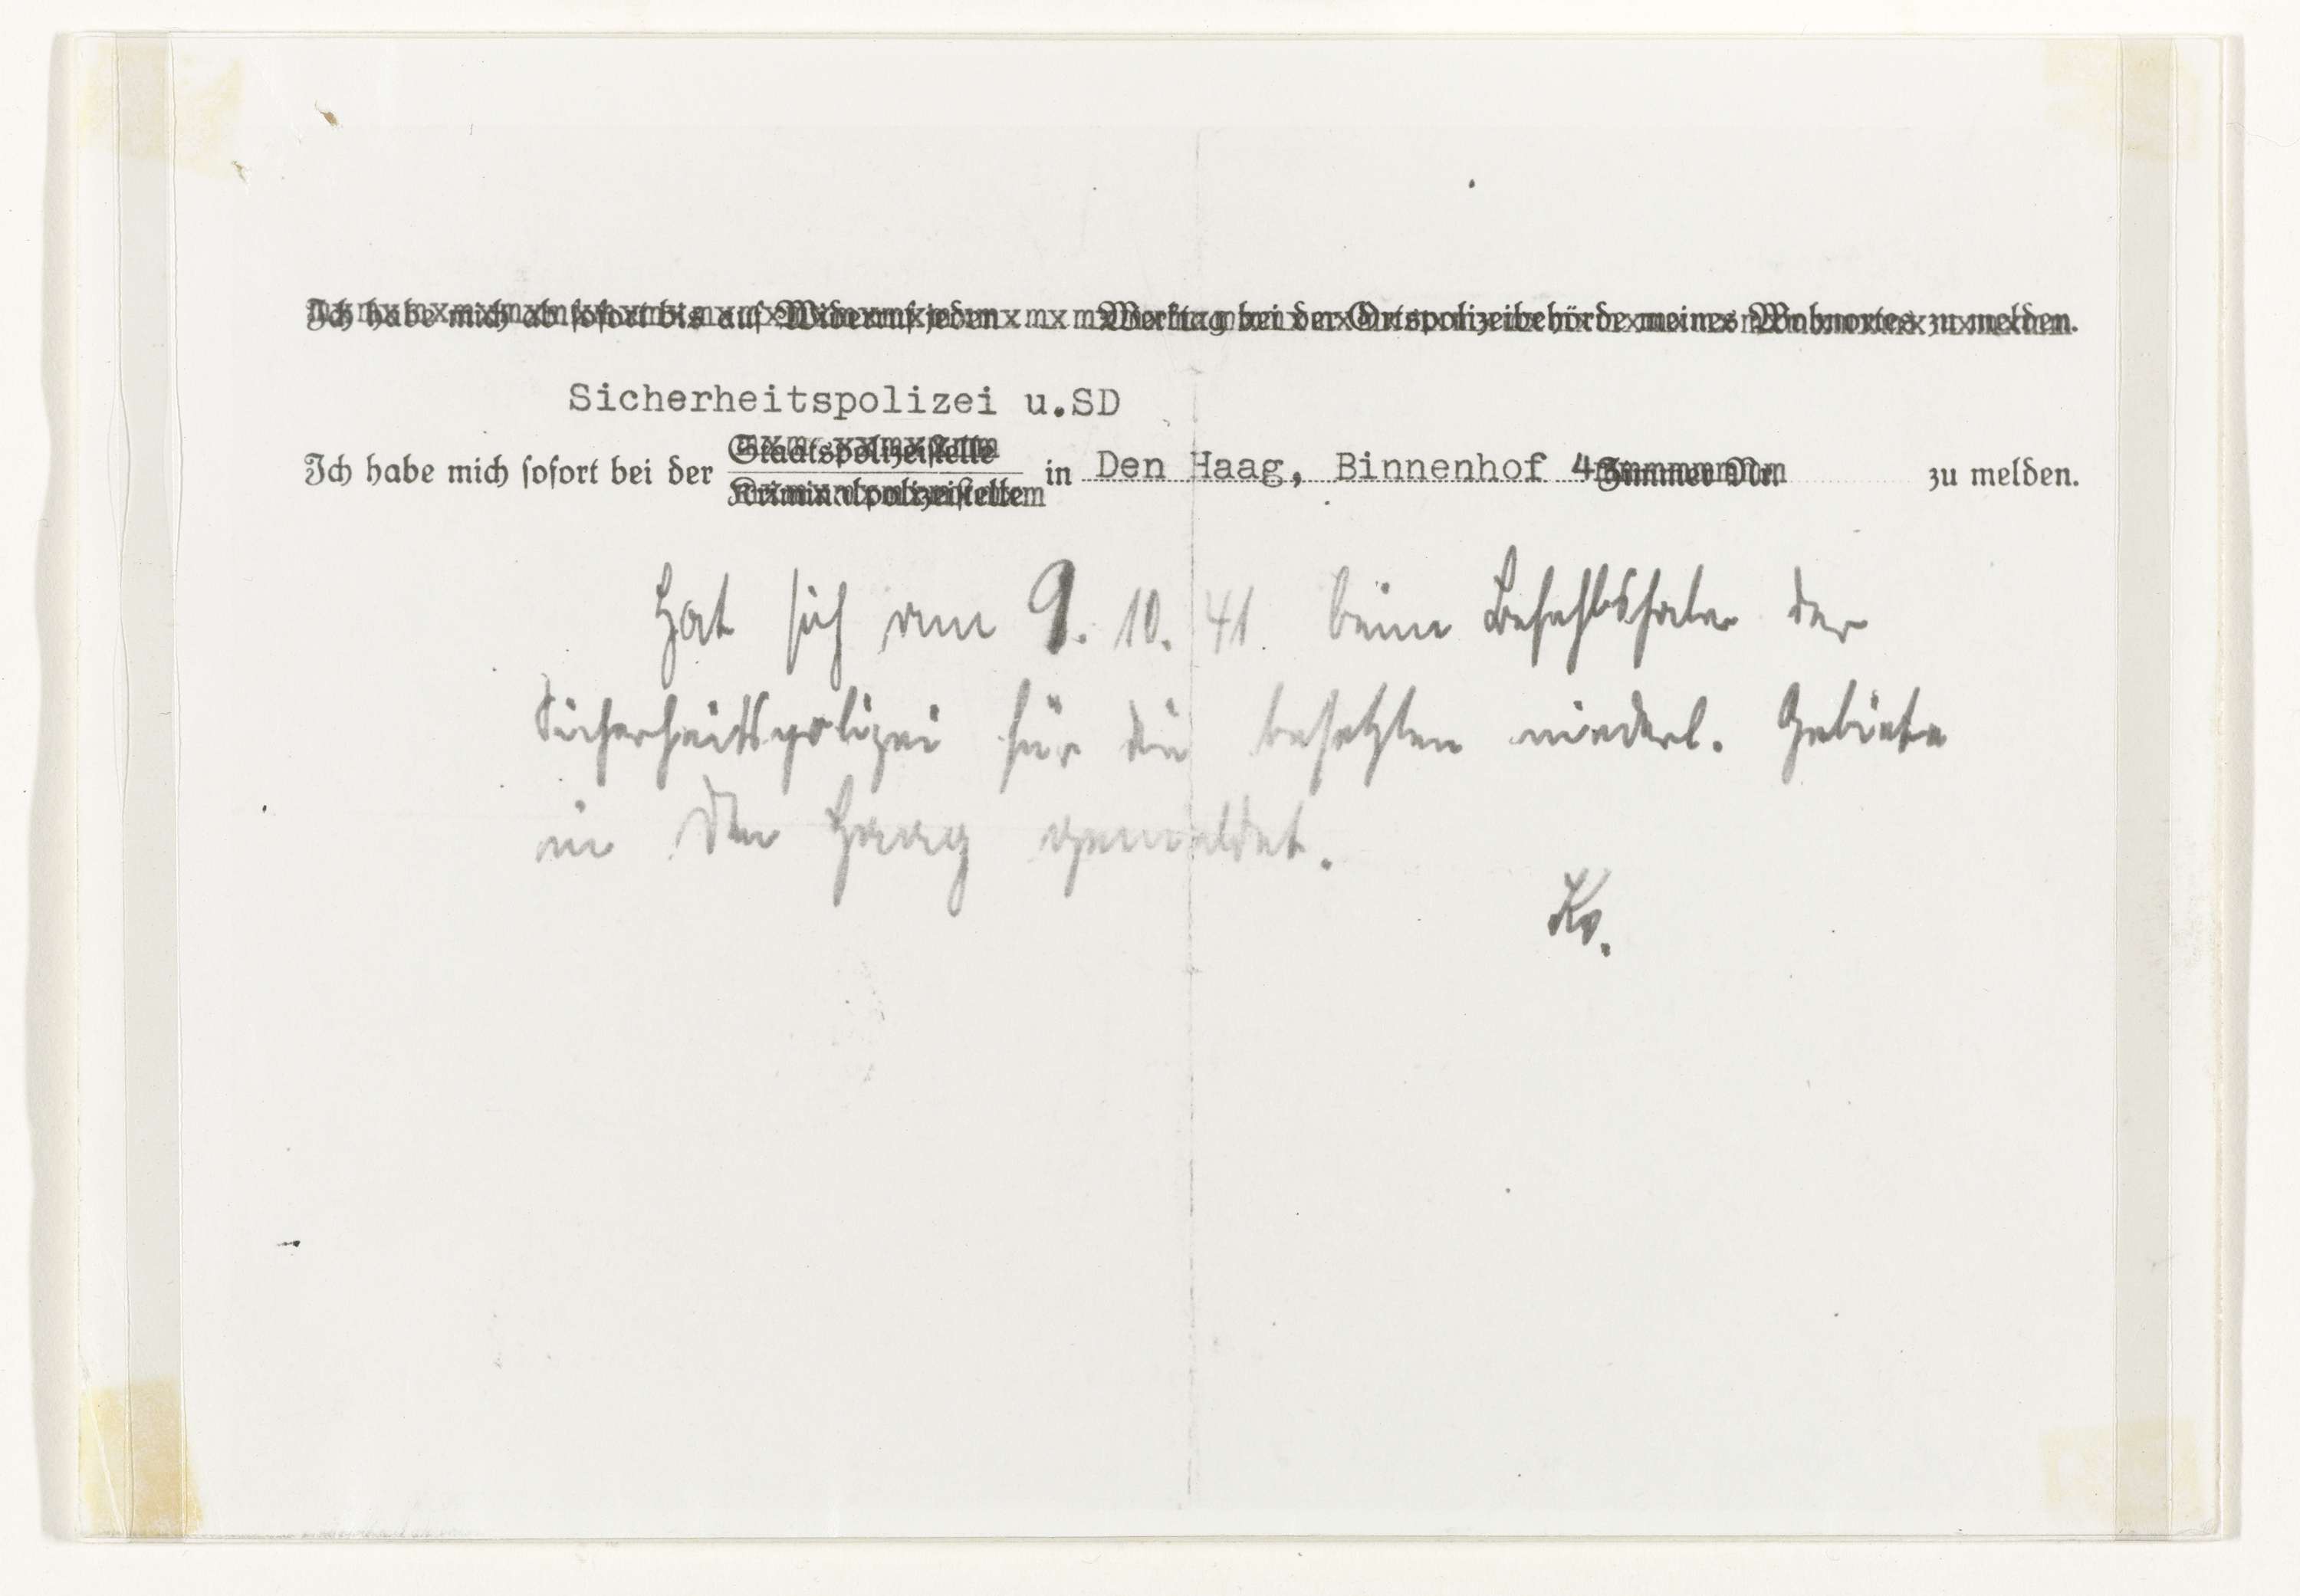 Ich habe mich ab sofort bis auf Widerruf jeden Werktag bei der Ortspolizeibehörde meines Wohnortes zu melden.
Sicherheitspolizei u.SD
Staatspolizeistelle
Ich habe mich sofort bei der in Den Haag, Binnenhof 4 Zimmer Nr. zu melden.
Kriminalpolizeistelle
Hat sich am 9. 10. 41. beim Befehlshaber der
Sicherheitspolizei für die besetzten niederl. Gebiete
in Den Haag gemeldet.